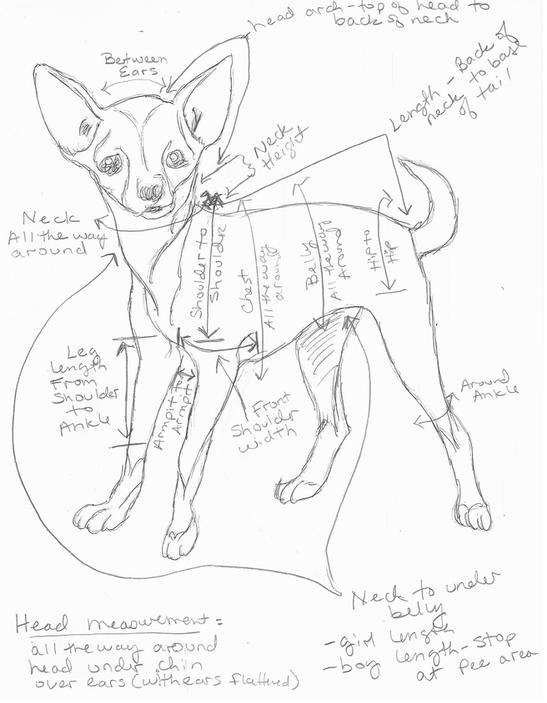 head arch-top of head to
back of neck
Between
Ears
Length - Back of
neck to base
of tail
Neck
Height
Neck
All the way
around
Shoulder to
Shoulder
Chest
All the way
around
Belly
All the way
Around
Hip to
Hip
Leg
length
From
Shoulder
to
Ankle
Armpit to
Armpit
Front
Shoulder
width
Around
Ankle
Neck to under
belly
-girl length
-boy length-stop
at pee area
Head measurement=
all the way around
head under chin
over ears (with ears flattened)